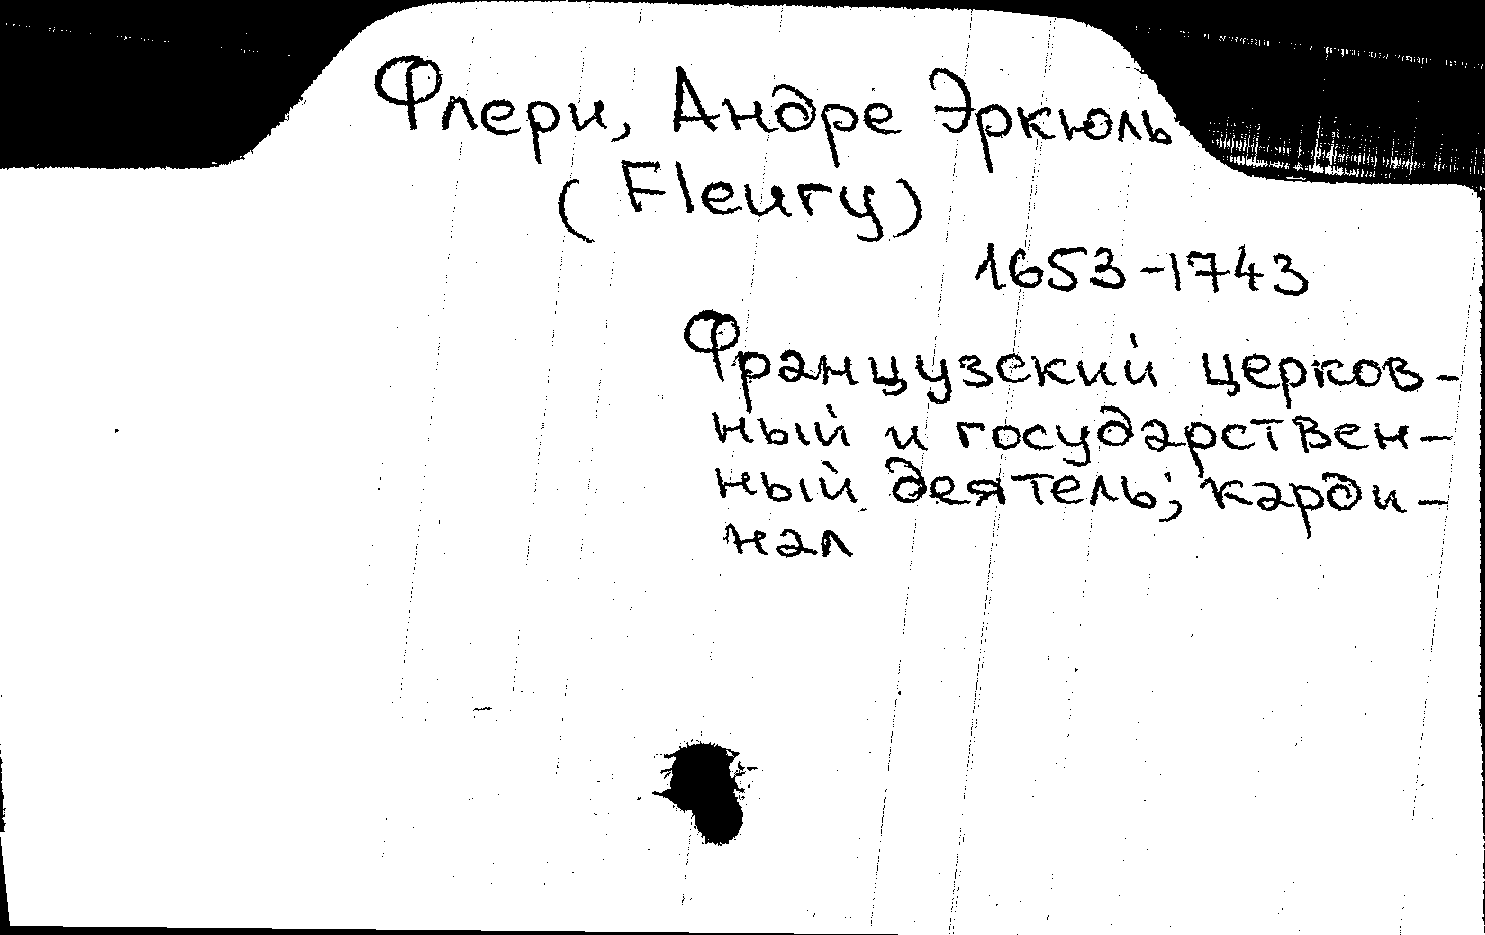 Флери, Андре Эркюль
(Fleury)
1653-1743
Французский церков-
ный и государствен-
ный деятель; карди-
нал